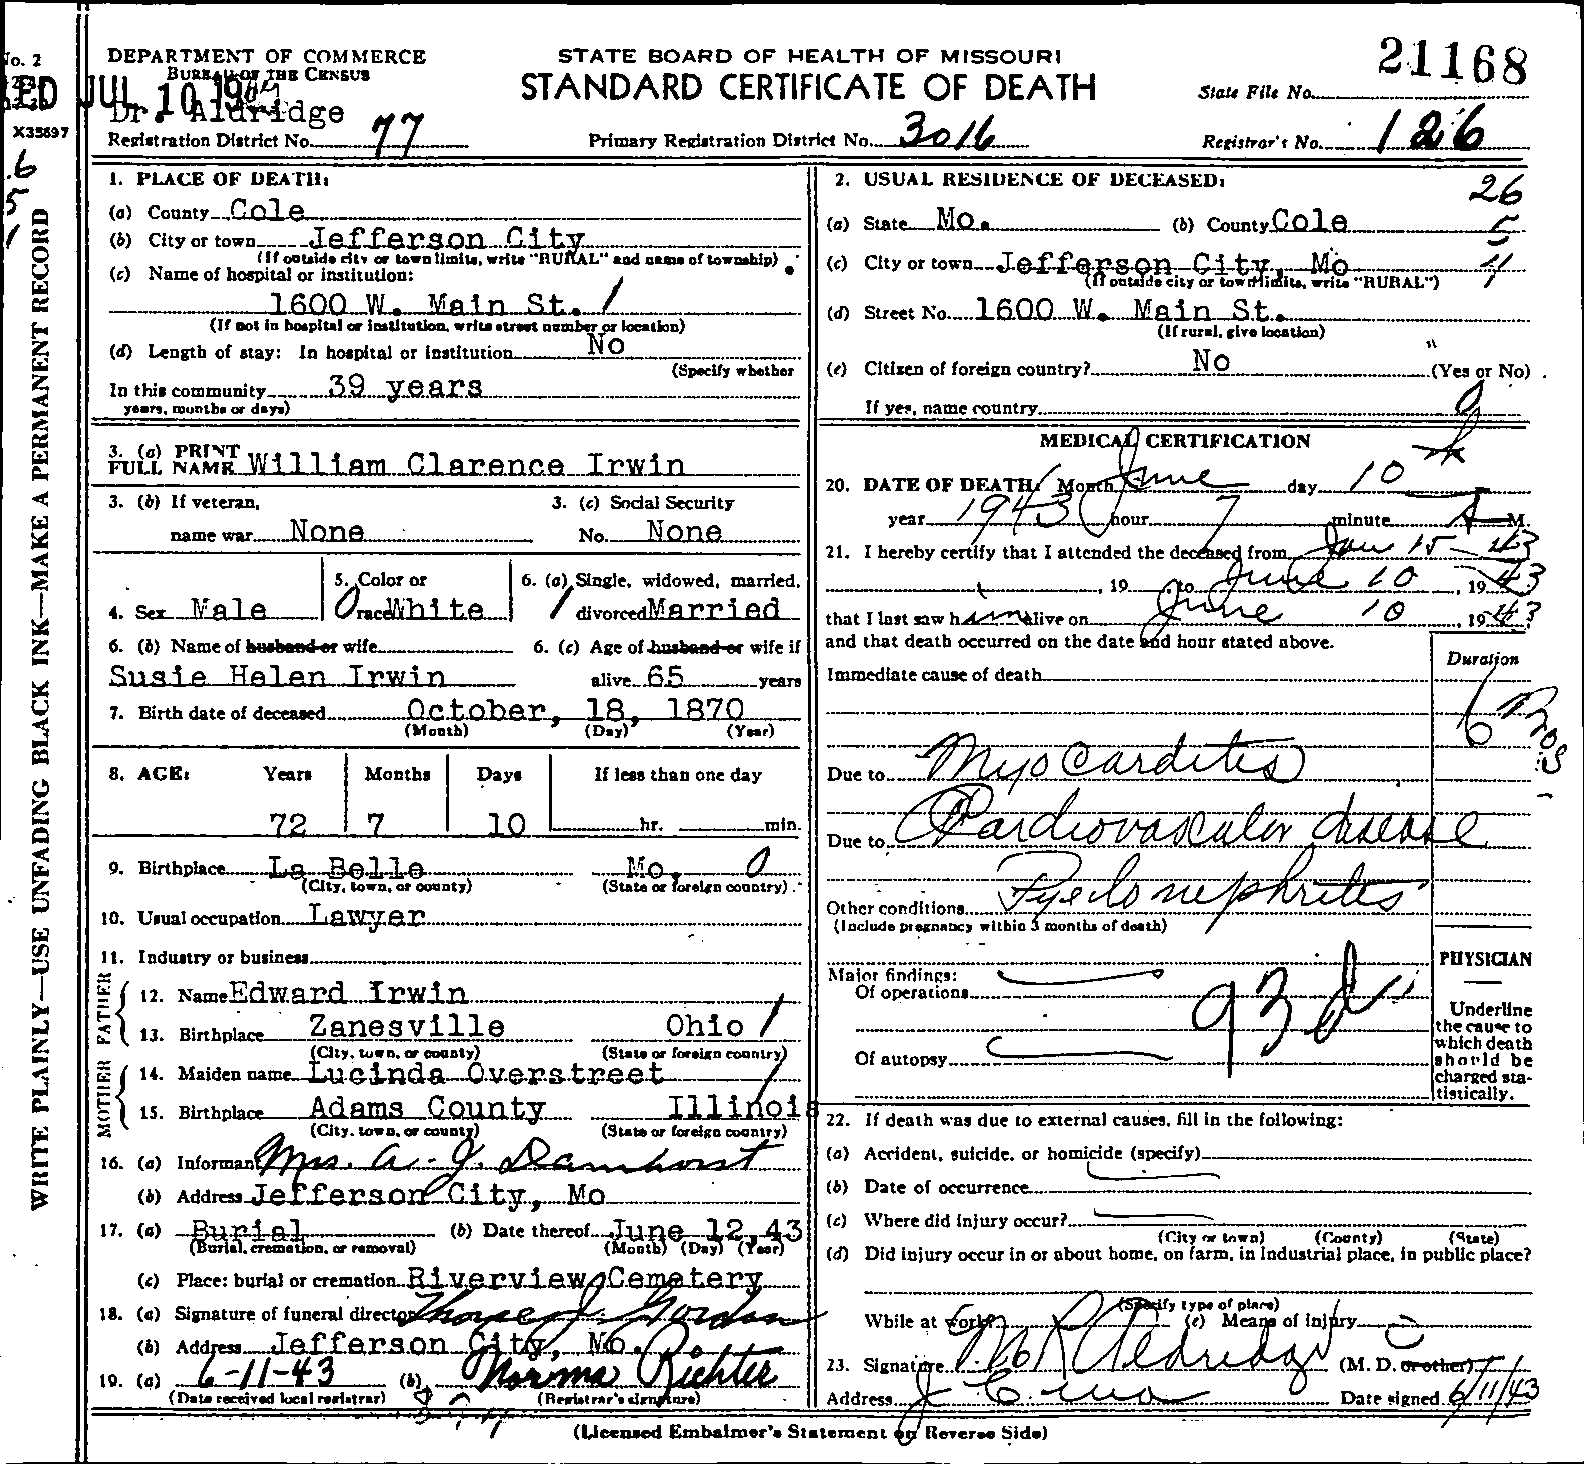 No. 2
DEPARTMENT OF COMMERCE
BUREAU OF THE CENSUS
ED JUL 10 19
Dr. Aldridge
X35897
Registration District No. 77
STATE BOARD OF HEALTH OF MISSOURI
STANDARD CERTIFICATE OF DEATH
Primary Registration District No. 3016
21168
State File No.
Registrar's No. 126
6
5
1
WRITE PLAINLY—USE UNFADING BLACK INK—MAKE A PERMANENT RECORD
1. PLACE OF DEATH:
(a) County Cole
(b) City or town Jefferson City
(If outside city or town limits, write "RURAL" and name of township)
(c) Name of hospital or institution:
1600 W. Main St. /
(If not in hospital or institution, write street number or location)
(d) Length of stay: In hospital or institution No
(Specify whether
In this community 39 years
years, months or days)
3. (a) PRINT
FULL NAME William Clarence Irwin
3. (b) If veteran,
name war None
3. (c) Social Security
No. None
4. Sex Male
5. Color or
race White
6. (a) Single, widowed, married,
divorced Married
6. (b) Name of husband or wife
Susie Helen Irwin
6. (c) Age of husband or wife if
alive 65 years
7. Birth date of deceased October, 18, 1870
(Month) (Day) (Year)
8. AGE: Years Months Days If less than one day
72 7 10 hr. min.
9. Birthplace La Belle Mo. 0
(City, town, or county) (State or foreign country)
10. Usual occupation Lawyer
11. Industry or business
FATHER
12. Name Edward Irwin
13. Birthplace Zanesville Ohio /
(City, town, or county) (State or foreign country)
MOTHER
14. Maiden name Lucinda Overstreet
15. Birthplace Adams County Illinois
(City, town, or county) (State or foreign country)
16. (a) Informant Mrs. A. J. Damhorst
(b) Address Jefferson City, Mo
17. (a) Burial (b) Date thereof June 12, 43
(Burial, cremation, or removal) (Month) (Day) (Year)
(c) Place: burial or cremation Riverview Cemetery
18. (a) Signature of funeral director Thorpe J. Gordon
(b) Address Jefferson City, Mo.
19. (a) 6-11-43 (b) Norma Richter
(Date received local registrar) (Registrar's signature)
2. USUAL RESIDENCE OF DECEASED:
26
(a) State Mo. (b) County Cole
5
(c) City or town Jefferson City, Mo
(If outside city or town limits, write "RURAL")
(d) Street No. 1600 W. Main St.
(If rural, give location)
(e) Citizen of foreign country? No (Yes or No)
If yes, name country
MEDICAL CERTIFICATION
20. DATE OF DEATH: Month June day 10
year 1943 hour 7 minute A M.
21. I hereby certify that I attended the deceased from Jan 15 - 43
, 19 , to June 10, 1943
that I last saw him alive on June 10, 1943
and that death occurred on the date and hour stated above.
Immediate cause of death
Duration
6 mos.
Due to Myocarditis
Due to Cardiovascular disease
Other conditions Pyelonephritis
(Include pregnancy within 3 months of death)
Major findings:
Of operations
93d
Of autopsy
PHYSICIAN
Underline
the cause to
which death
should be
charged sta-
tistically.
22. If death was due to external causes, fill in the following:
(a) Accident, suicide, or homicide (specify)
(b) Date of occurrence
(c) Where did injury occur?
(City or town) (County) (State)
(d) Did injury occur in or about home, on farm, in industrial place, in public place?
(Specify type of place)
While at work? (e) Means of injury
23. Signature Aldridge (M. D. or other)
Address J C. Mo Date signed 6/11/43
(Licensed Embalmer's Statement on Reverse Side)